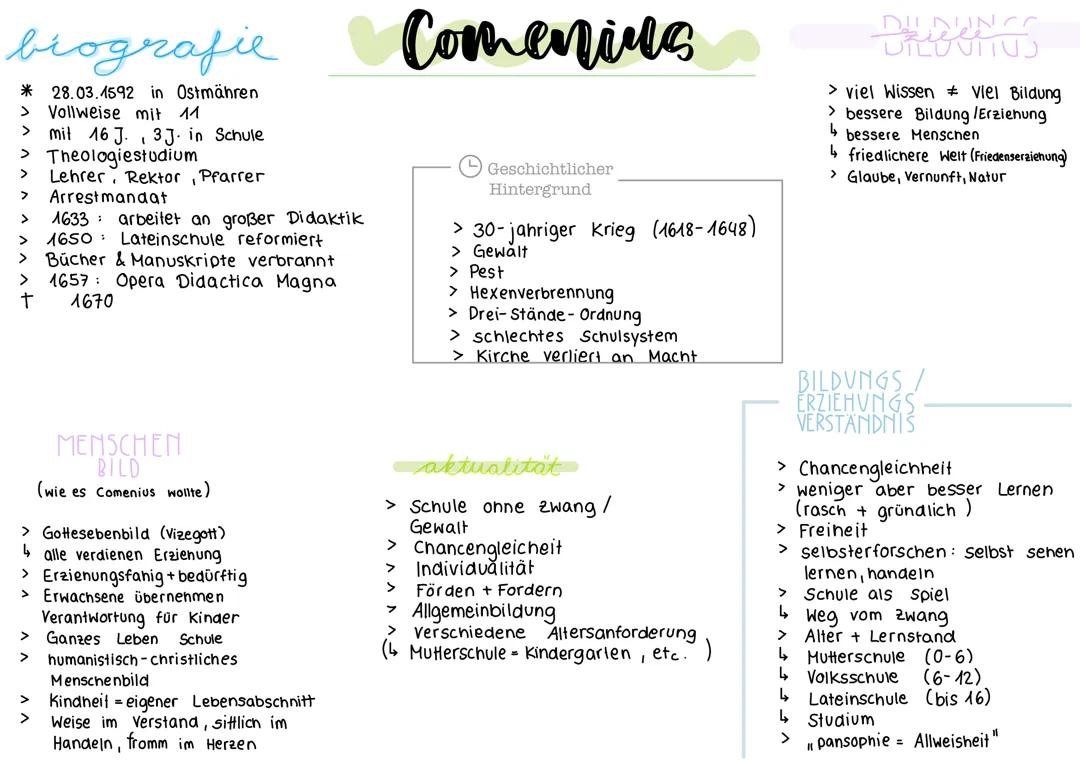 Comenius
biografie
* 28.03.1592 in Ostmähren
> Vollweise mit 11
> mit 16 J. , 3 J. in Schule
> Theologiestudium
> Lehrer, Rektor, Pfarrer
> Arrestmandat
> 1633 : arbeitet an großer Didaktik
> 1650 : Lateinschule reformiert
> Bücher & Manuskripte verbrannt
> 1657 : Opera Didactica Magna
† 1670
Geschichtlicher
Hintergrund
> 30-jahriger Krieg (1618-1648)
> Gewalt
> Pest
> Hexenverbrennung
> Drei-Stände-Ordnung
> schlechtes Schulsystem
> Kirche verliert an Macht
BILDUNGS
ziele
> viel Wissen ≠ viel Bildung
> bessere Bildung/Erziehung
↳ bessere Menschen
↳ friedlichere Welt (Friedenserziehung)
> Glaube, Vernunft, Natur
MENSCHEN
BILD
(wie es Comenius wollte)
> Gottesebenbild (Vizegott)
↳ alle verdienen Erziehung
> Erziehungsfähig + bedürftig
> Erwachsene übernehmen
Verantwortung für Kinder
> Ganzes Leben Schule
> humanistisch-christliches
Menschenbild
> Kindheit = eigener Lebensabschnitt
> Weise im Verstand, sittlich im
Handeln, fromm im Herzen
aktualität
> Schule ohne zwang /
Gewalt
> Chancengleicheit
> Individualität
> Förden + Fordern
> Allgemeinbildung
> verschiedene Altersanforderung
(↳ Mutterschule = Kindergarten, etc. )
BILDUNGS /
ERZIEHUNGS
VERSTÄNDNIS
> Chancengleichheit
> weniger aber besser Lernen
(rasch + gründlich )
> Freiheit
> selbsterforschen : selbst sehen
lernen, handeln
> Schule als spiel
↳ Weg vom zwang
> Alter + Lernstand
↳ Mutterschule (0-6)
↳ Volksschule (6-12)
↳ Lateinschule (bis 16)
↳ Studium
> „pansophie = Allweisheit"